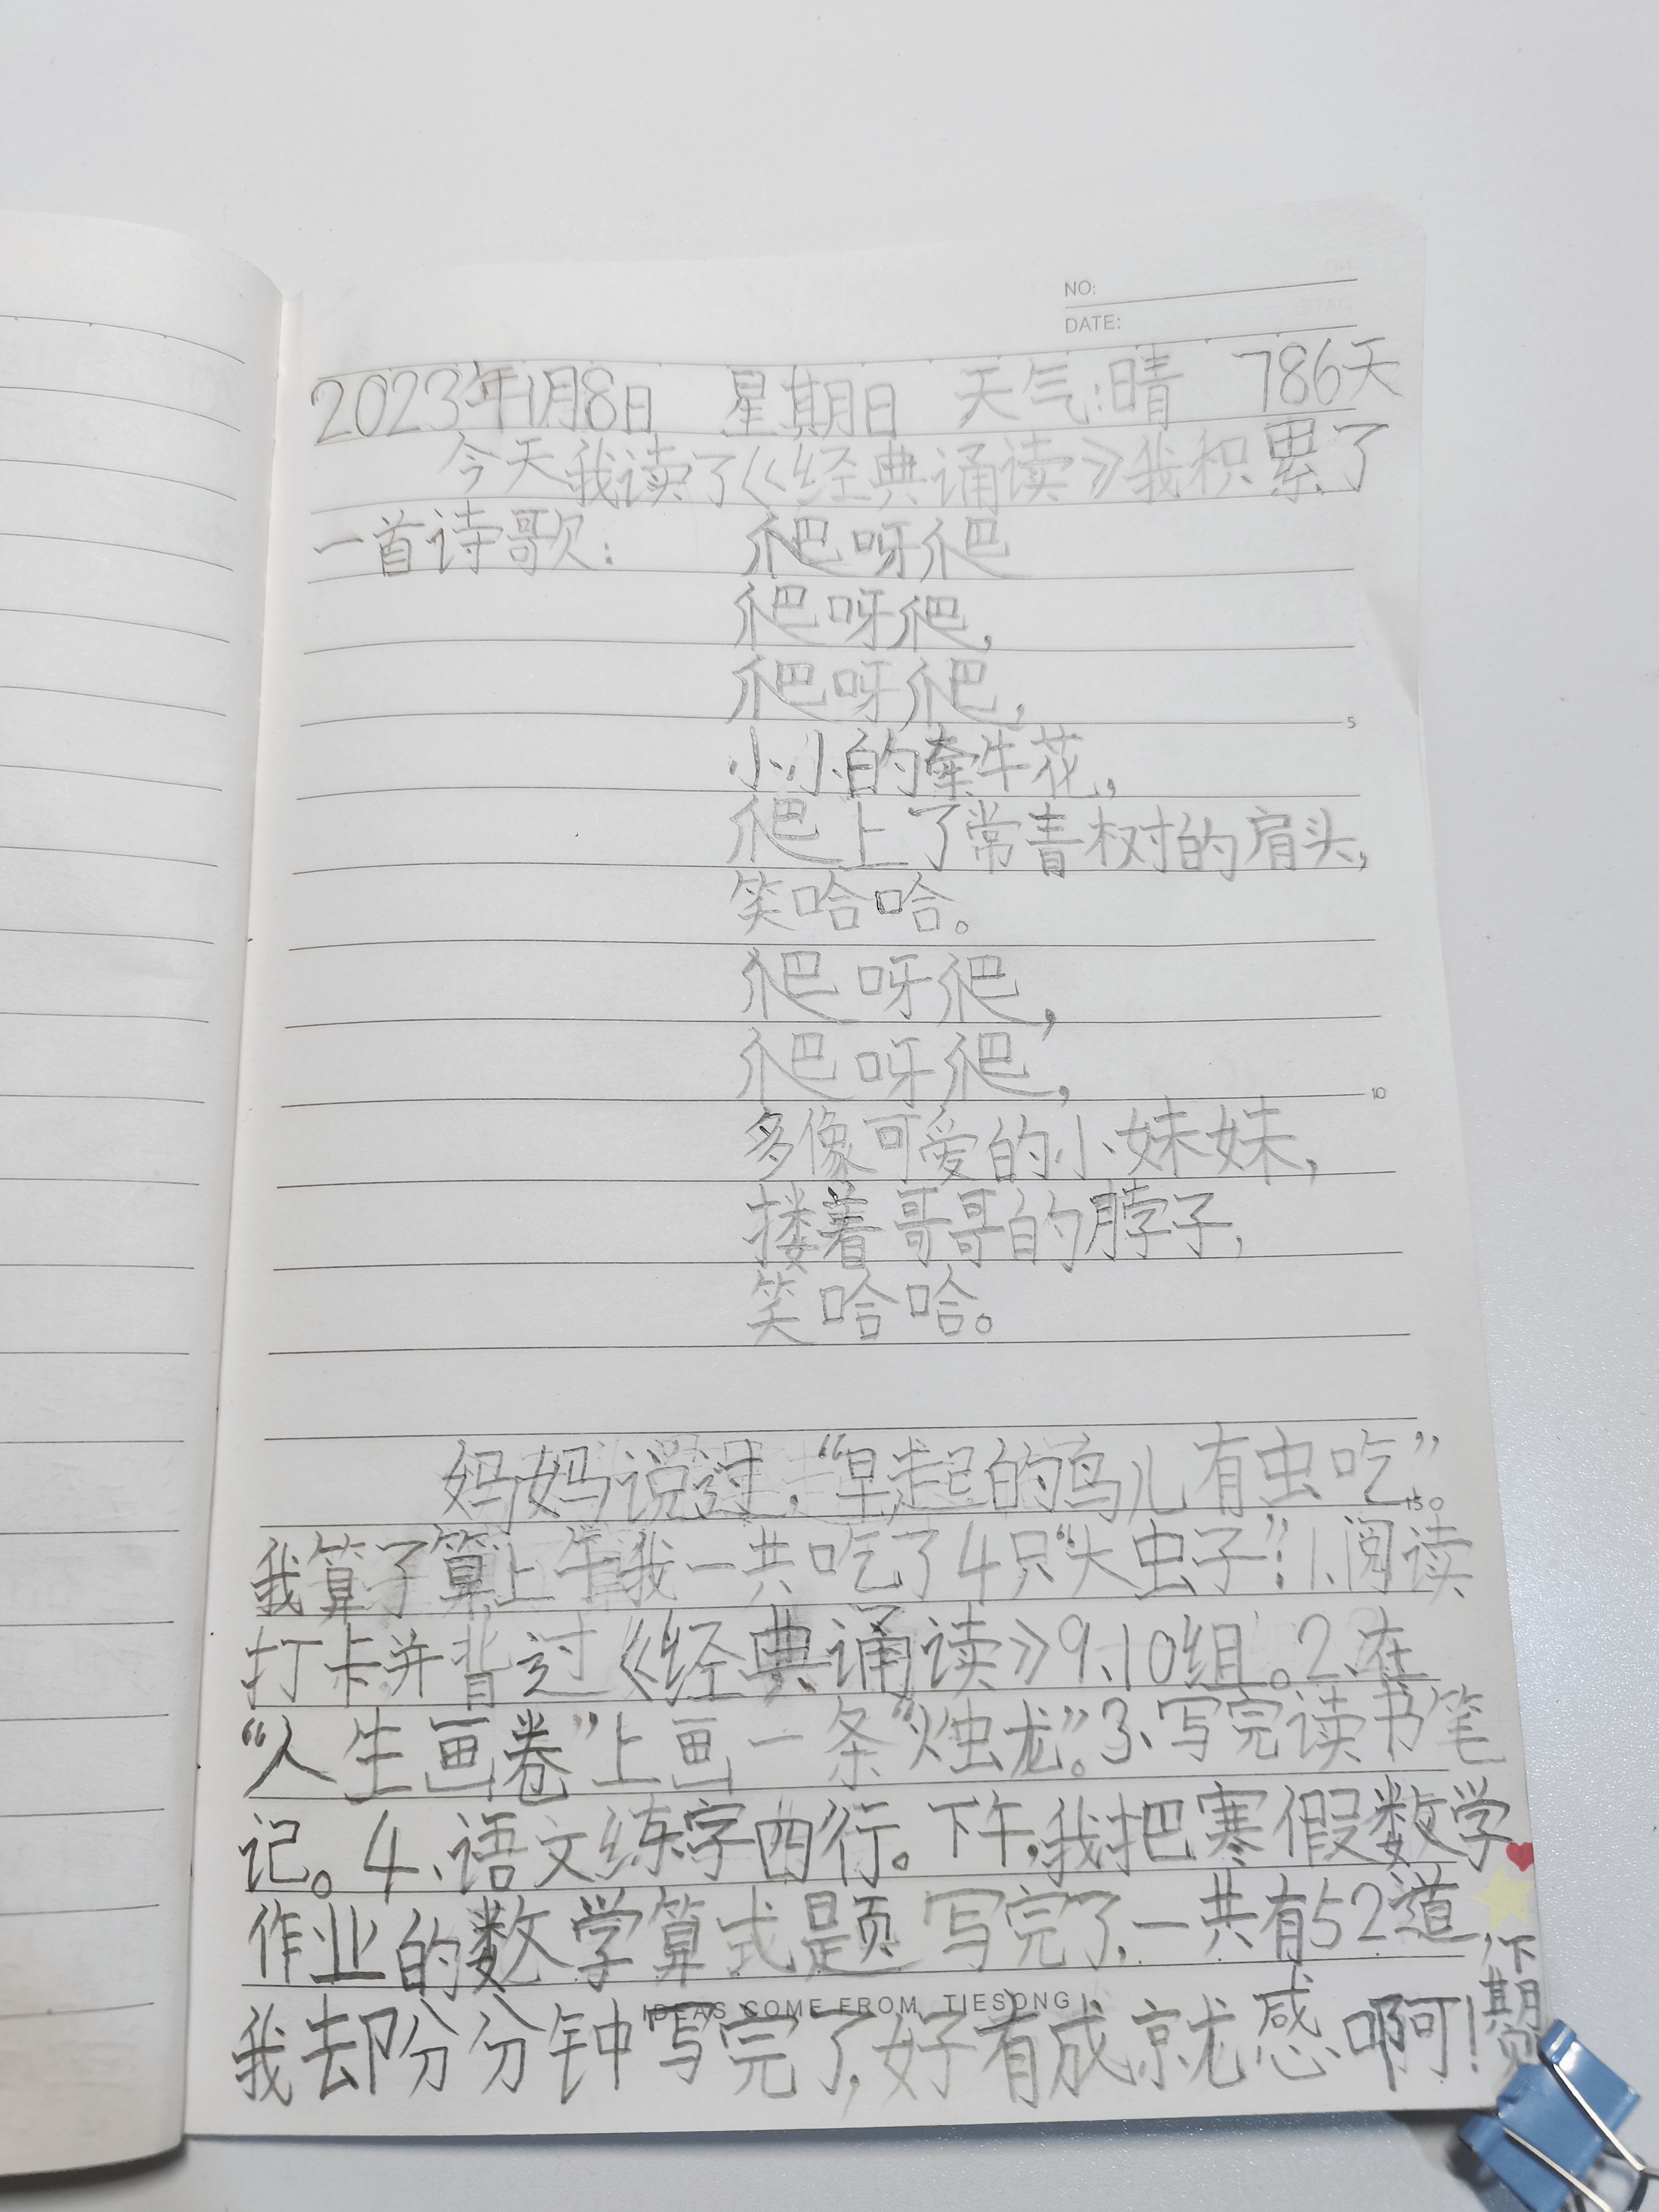 NO:
DATE:
2023年1月8日 星期日 天气:晴 786天
今天我读了《经典诵读》我积累了
一首诗歌: 爬呀爬
爬呀爬,
爬呀爬,
5
小小的牵牛花,
爬上了常青树的肩头,
笑哈哈。
爬呀爬,
爬呀爬,
10
多像可爱的小妹妹,
搂着哥哥的脖子,
笑哈哈。
妈妈说过,“早起的鸟儿有虫吃”
我算了算上午我一共吃了4只“大虫子”:1.阅读
打卡并背过《经典诵读》9、10组。2、在
“人生画卷”上画一条“烛龙”。3、写完读书笔
记。4、语文练字四行。下午,我把寒假数学
作业的数学算式题写完了,一共有52道,
我去卩分分钟写完了,好有成就感啊!
下期
IDEAS COME FROM TIESONG